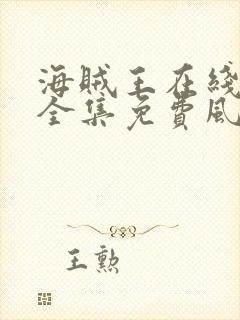 海贼王在线
全集免费风
王勲